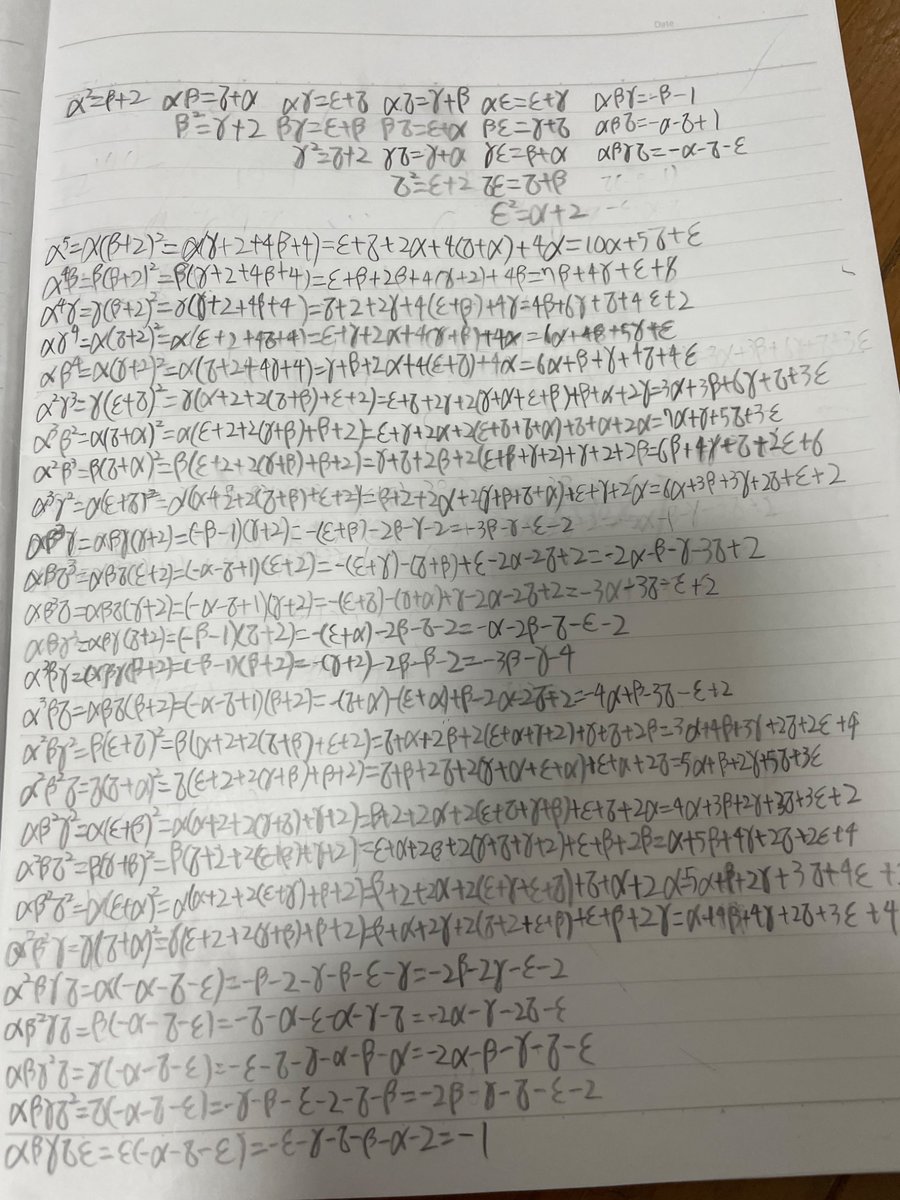 Date
α²=β+2 αβ=δ+α αγ=ε+δ αδ=γ+β αε=ε+γ αβγ=-β-1
β²=γ+2 βγ=ε+β βδ=ε+α βε=γ+δ αβδ=-α-δ+1
γ²=δ+2 γδ=γ+α γε=β+α αβγδ=-α-δ-ε
δ²=ε+2 δε=δ+β
ε²=α+2
α⁵=α(β+2)²=α(γ+2+4β+4)=ε+δ+2α+4(δ+α)+4α=10α+5δ+ε
α⁴β=β(β+2)²=β(γ+2+4β+4)=ε+β+2β+4(γ+2)+4β=7β+4γ+ε+8
α⁴γ=γ(β+2)²=γ(γ+2+4β+4)=δ+2+2γ+4(ε+β)+4γ=4β+6γ+δ+4ε+2
αγ⁴=α(δ+2)²=α(ε+2+4δ+4)=ε+γ+2α+4(γ+β)+4α=6α+4β+5γ+ε
αβ⁴=α(γ+2)²=α(δ+2+4γ+4)=γ+β+2α+4(ε+δ)+4α=6α+β+γ+4δ+4ε
α²γ³=γ(ε+δ)²=γ(α+2+2(δ+β)+ε+2)=ε+δ+2γ+2(γ+α+ε+β)+β+α+2γ=3α+3β+6γ+δ+3ε
α³β²=α(δ+α)²=α(ε+2+2(γ+β)+β+2)=ε+γ+2α+2(ε+δ+δ+α)+δ+α+2α=7α+γ+5δ+3ε
α²β³=β(δ+α)²=β(ε+2+2(γ+β)+β+2)=γ+δ+2β+2(ε+β+γ+2)+γ+2+2β=6β+4γ+δ+2ε+6
α³γ²=α(ε+δ)²=α(α+2+2(δ+β)+ε+2)=β+2+2α+2(γ+β+δ+α)+ε+γ+2α=6α+3β+3γ+2δ+ε+2
αβ³γ=αβγ(γ+2)=(-β-1)(γ+2)=-(ε+β)-2β-γ-2=-3β-γ-ε-2
αβδ³=αβδ(ε+2)=(-α-δ+1)(ε+2)=-(ε+γ)-(δ+β)+ε-2α-2δ+2=-2α-β-γ-3δ+2
αβ³δ=αβδ(γ+2)=(-α-δ+1)(γ+2)=-(ε+δ)-(γ+α)+γ-2α-2δ+2=-3α-3δ-ε+2
αβγ³=αβγ(δ+2)=(-β-1)(δ+2)=-(ε+α)-2β-δ-2=-α-2β-δ-ε-2
α³βγ=αβγ(β+2)=(-β-1)(β+2)=-(γ+2)-2β-β-2=-3β-γ-4
α³βδ=αβδ(β+2)=(-α-δ+1)(β+2)=-(δ+α)-(ε+α)+β-2α-2δ+2=-4α+β-3δ-ε+2
α²βγ²=β(ε+δ)²=β(α+2+2(δ+β)+ε+2)=δ+α+2β+2(ε+α+γ+2)+γ+δ+2β=3α+4β+3γ+2δ+2ε+4
α²β²δ=δ(δ+α)²=δ(ε+2+2(γ+β)+β+2)=δ+β+2δ+2(γ+α+ε+α)+ε+α+2δ=5α+β+2γ+5δ+3ε
αβ²γ²=α(ε+β)²=α(α+2+2(γ+δ)+γ+2)=β+2+2α+2(ε+δ+γ+β)+ε+δ+2α=4α+3β+2γ+3δ+3ε+2
α²βδ²=β(γ+β)²=β(δ+2+2(ε+β)+γ+2)=ε+α+2β+2(γ+δ+γ+2)+ε+β+2β=α+5β+4γ+2δ+2ε+4
αβ²δ²=α(ε+α)²=α(α+2+2(ε+γ)+β+2)=β+2+2α+2(ε+γ+ε+δ)+δ+α+2α=5α+β+2γ+3δ+4ε+
α²β²γ=γ(δ+α)²=γ(ε+2+2(γ+β)+β+2)=β+α+2γ+2(δ+2+ε+β)+ε+β+2γ=α+4β+4γ+2δ+3ε+4
α²βγδ=α(-α-δ-ε)=-β-2-γ-β-ε-γ=-2β-2γ-ε-2
αβ²γδ=β(-α-δ-ε)=-δ-α-ε-α-γ-δ=-2α-γ-2δ-ε
αβγ²δ=γ(-α-δ-ε)=-ε-δ-γ-α-β-α=-2α-β-γ-δ-ε
αβγδ²=δ(-α-δ-ε)=-γ-β-ε-2-δ-β=-2β-γ-δ-ε-2
αβγδε=ε(-α-δ-ε)=-ε-γ-δ-β-α-2=-1